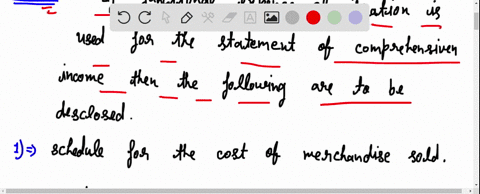 ation is
used for the statement of comprehensiven
income then the following are to be
desclosed.
1) ⇒ schedule for the cost of merchandise sold.